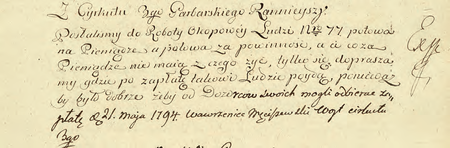 Z Cyrkułu 3go Garbarskiego Ranniejszy
Posłaliśmy do Roboty Okopowéy Ludzi Nro 77 połowa
na Pieniądze a połowa za powinność, a ci co za
Pieniądze nie maią czego żyć, tylko się doprasza
my gdzie po zapłatę takowi Ludzie poydą, ponieważ
by było dobrze żeby od Dozorców swoich mogli odbierać za,
płatę d. 21. maja 1794. Wawrzeniec Wóyt cirkułu
3go